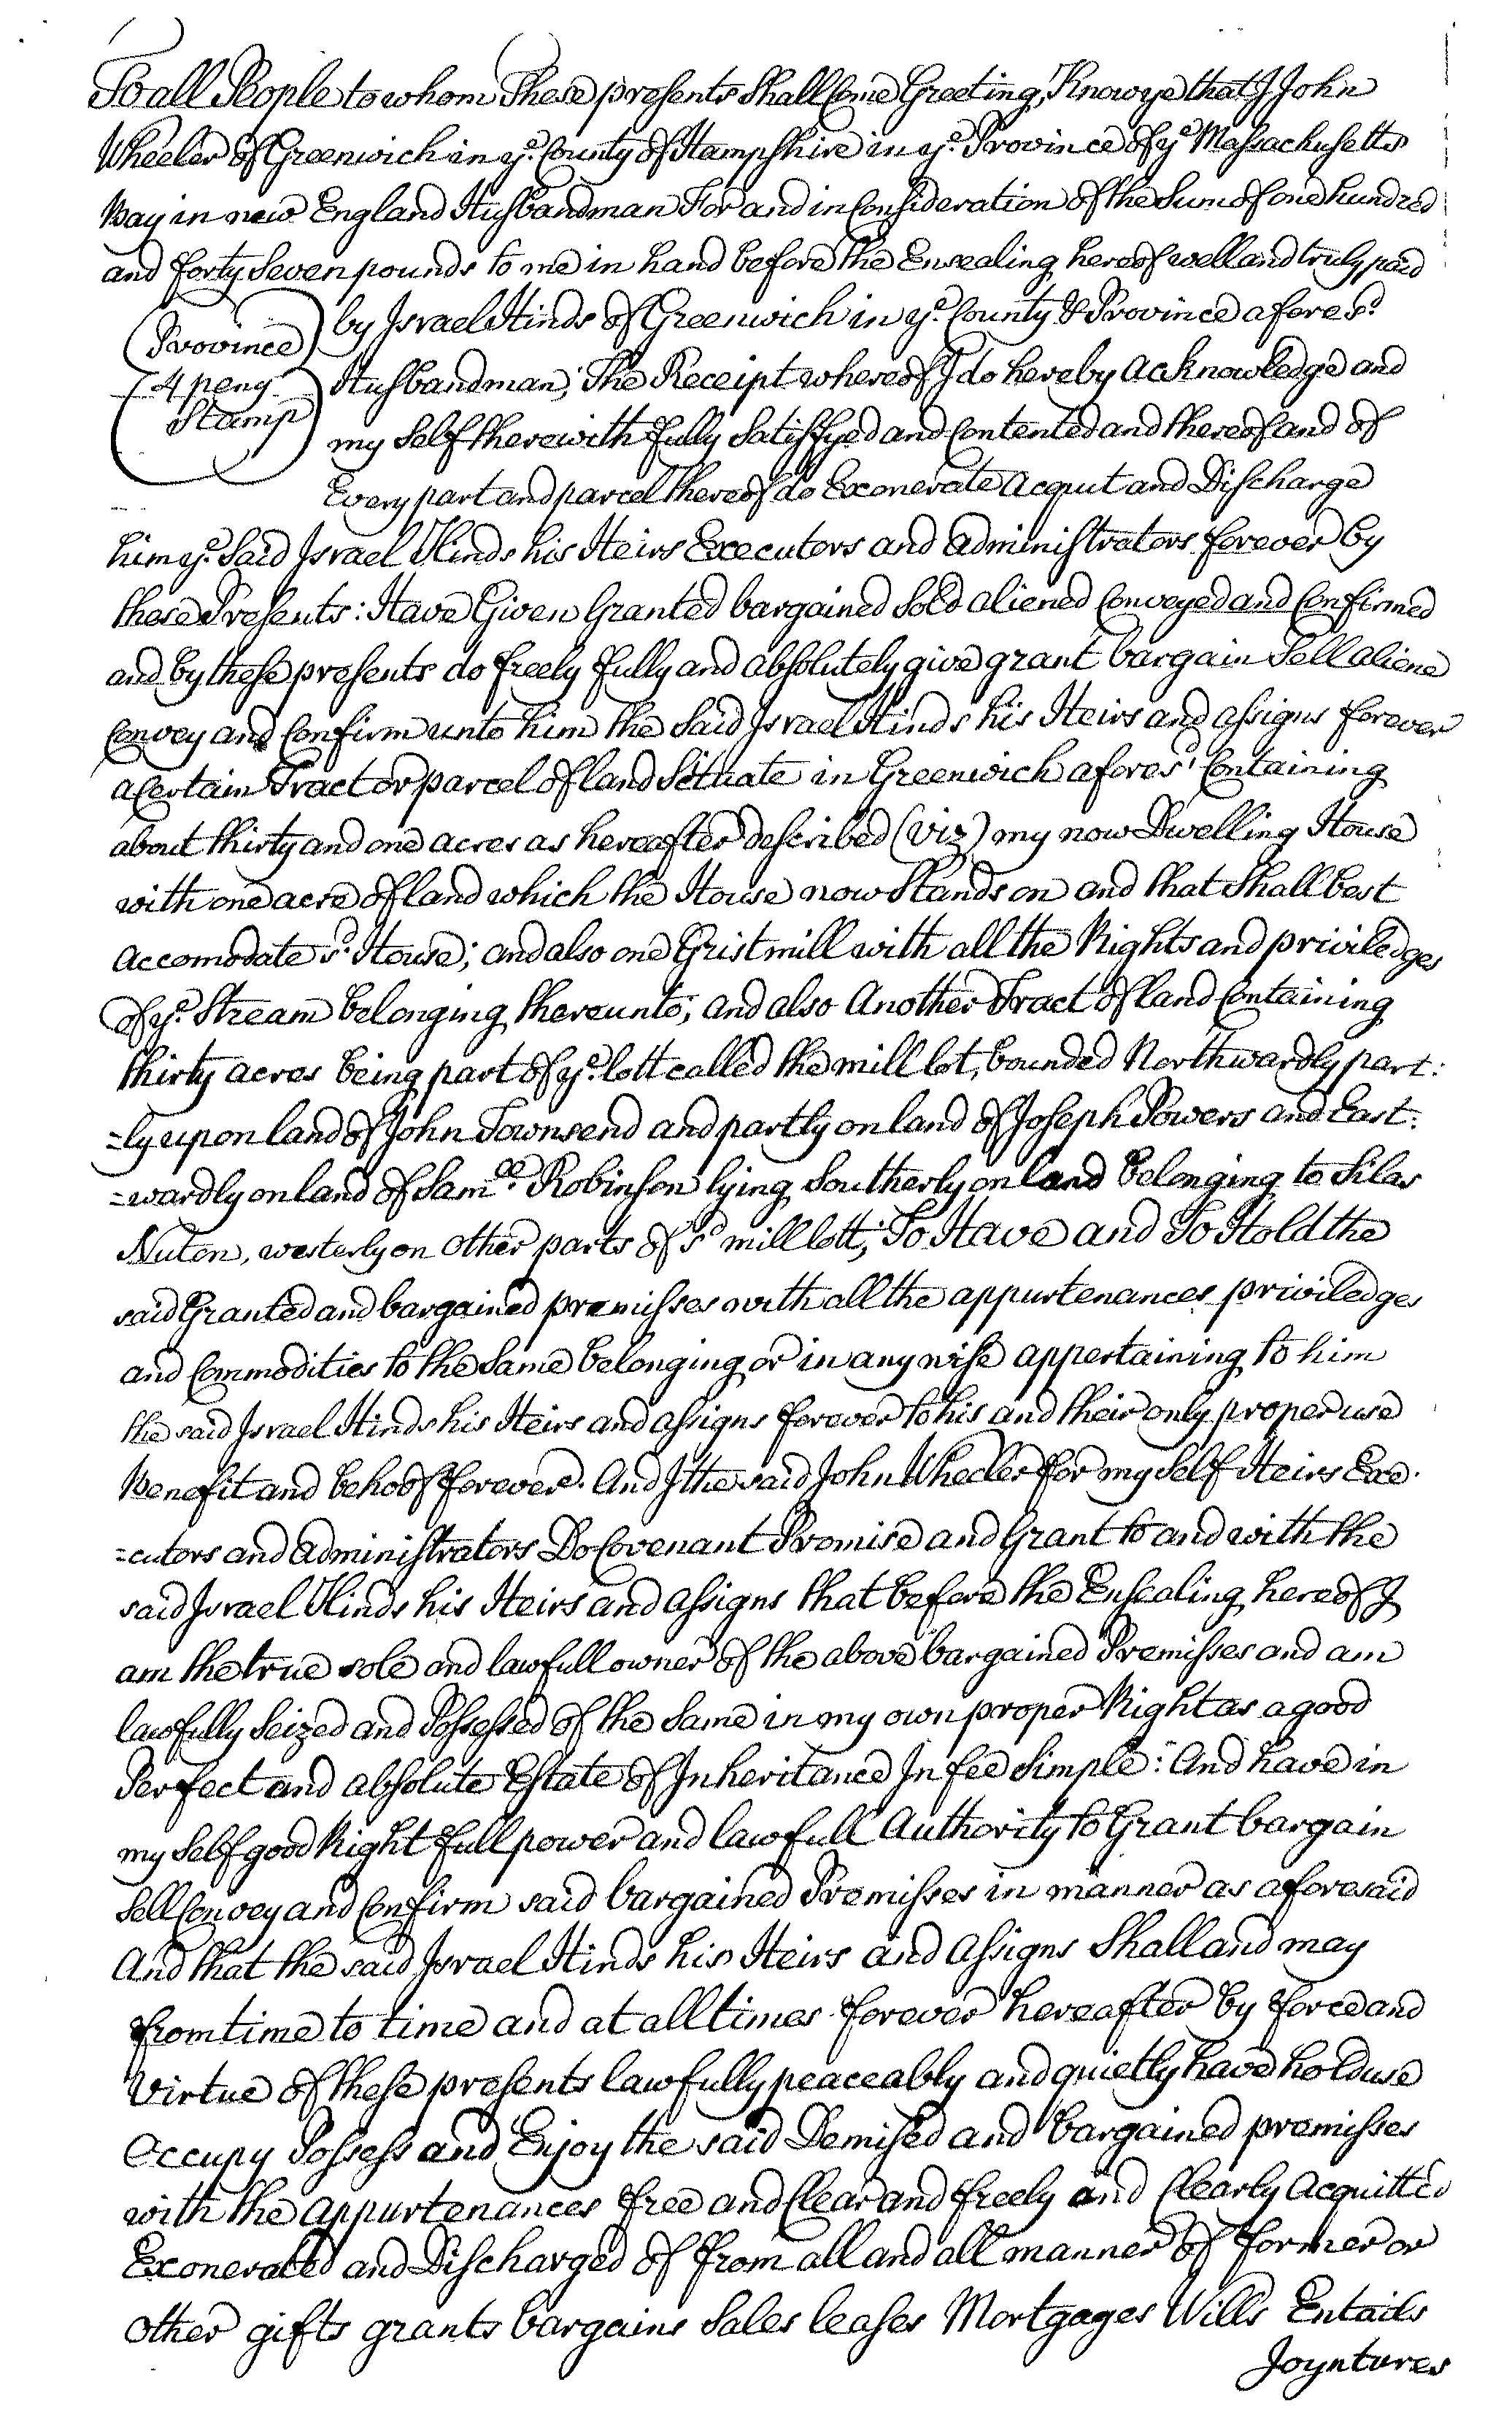 To all People to whom These presents Shall Come Greeting, Know ye that I John
Wheeler of Greenwich in yᵉ County of Hampshire in yᵉ Province of yᵉ Massachusetts
Bay in new England Husbandman For and in Consideration of the Sum of one hundred
and forty Seven pounds to me in hand before the Ensealing hereof well and truly paid
by Israel Hinds of Greenwich in yᵉ County & Province afores.ᵈ
Province
4 peny
Stamp
Husbandman, The Receipt whereof I do hereby acknowledge and
my Self therewith fully Satisfyed and Contented and thereof and of
Every part and parcel thereof do Exonerate acquit and Discharge
him yᵉ Said Israel Hinds his Heirs Executors and administrators forever by
these Presents: Have Given Granted bargained Sold aliened Conveyed and Confirmed
and by these presents do freely fully and absolutely give grant bargain Sell aliene
Convey and Confirm unto him the Said Israel Hinds his Heirs and assigns forever
a Certain Tract or parcel of land Situate in Greenwich afores.ᵈ Containing
about thirty and one acres as hereafter described (viz) my now Dwelling House
with one acre of land which the House now Stands on and that Shall best
accomodate sᵈ House; and also one Gristmill with all the Rights and priviledges
of yᵉ Stream belonging thereunto; and also Another Tract of land Containing
thirty acres being part of yᵉ lott called the mill lot, bounded Northwardly part:
=ly upon land of John Townsend and partly on land of Joseph Powers and East:
=wardly on land of Samˡˡ Robinson lying Southerly on land belonging to Silas
Nuton, westerly on other parts of sᵈ mill lott; To Have and To Hold the
said Granted and bargained premisses with all the appurtenances priviledges
and Commodities to the Same belonging or in any wise appertaining to him
the said Israel Hinds his Heirs and assigns forever to his and their only proper use
Benefit and behoof forever. And I the said John Wheeler for my Self Heirs Exe:
=cutors and administrators Do Covenant Promise and Grant to and with the
said Israel Hinds his Heirs and assigns that before the Ensealing hereof I
am the true sole and lawfull owner of the above bargained Premisses and am
lawfully Seized and Possessed of the Same in my own proper Right as a good
Perfect and absolute Estate of Inheritance In fee Simple: And have in
my Self good Right full power and lawfull Authority to Grant bargain
Sell Convey and Confirm said bargained Premisses in manner as aforesaid
And that the said Israel Hinds his Heirs and assigns Shall and may
from time to time and at all times forever hereafter by force and
Virtue of these presents lawfully peaceably and quietly have hold use
Occupy Possess and Enjoy the said Demised and bargained premisses
with the appurtenances free and Clear and freely and Clearly Acquitted
Exonerated and Discharged of from all and all manner of former or
other gifts grants bargains Sales leases Mortgages Wills Entails
Joyntures